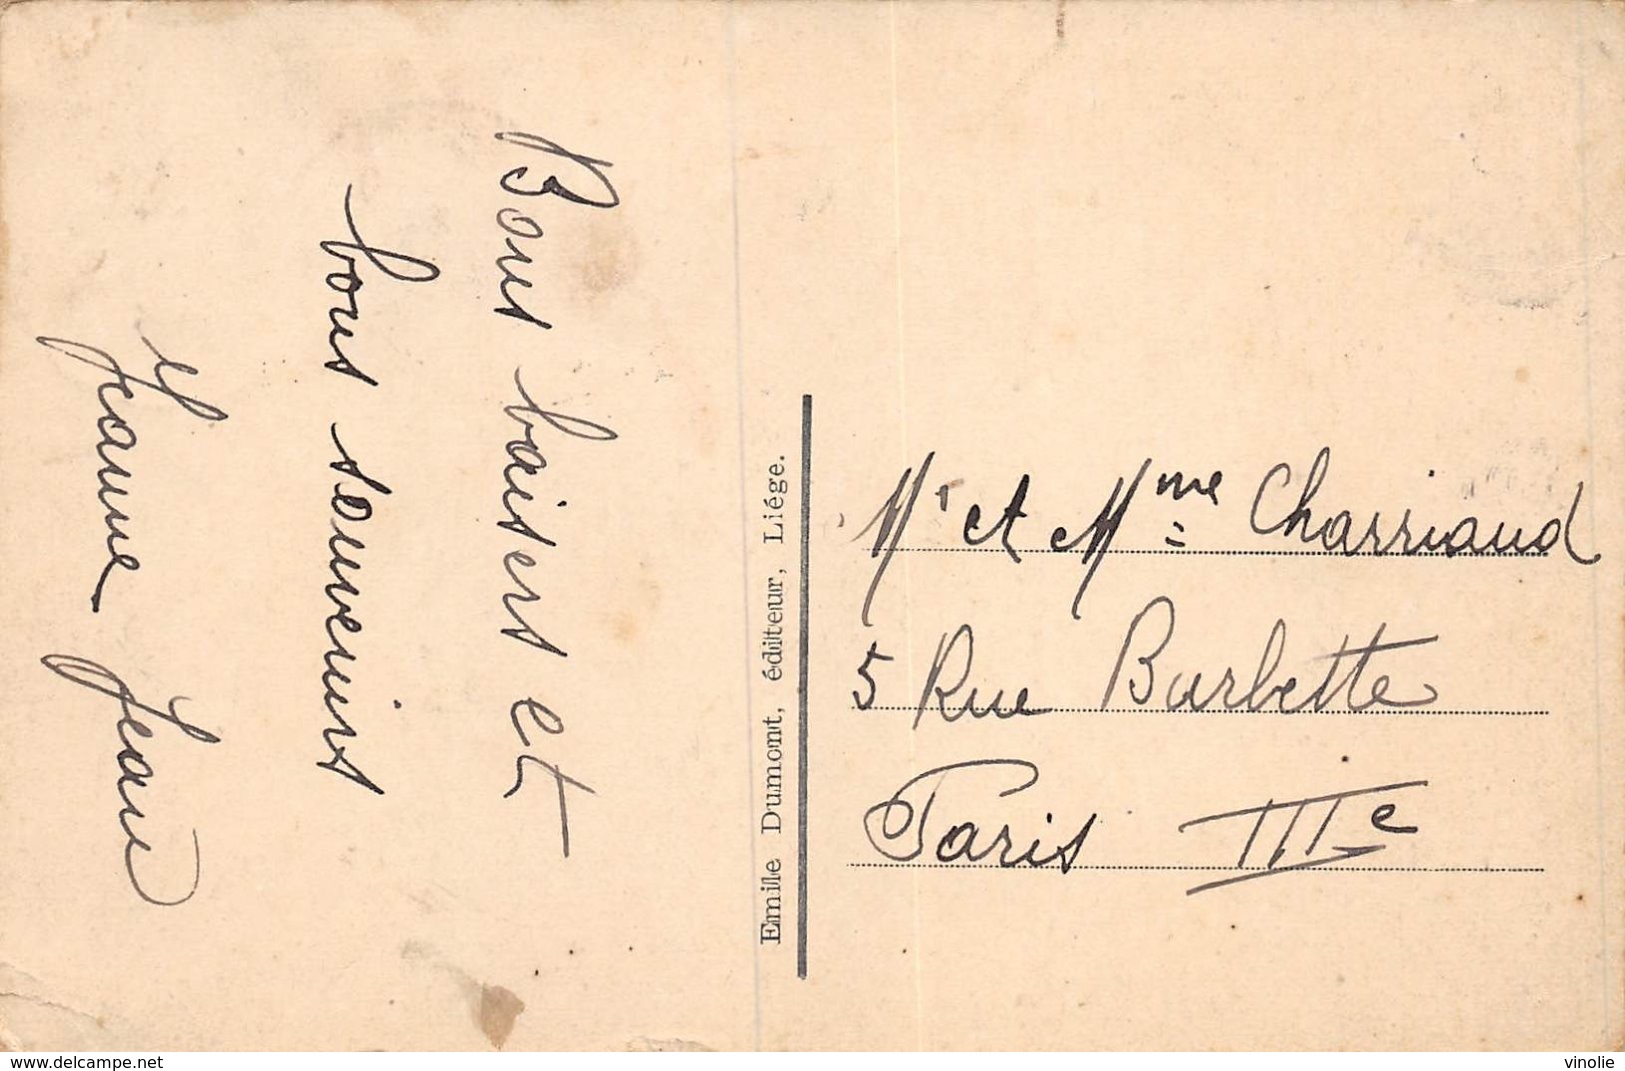 Bons baisers et
bons souvenirs
Jeanne Jean
Emile Dumont, éditeur, Liége.
Mr et Mme Charriaud
5 Rue Barbette
Paris IIIe
https://www.delcampe.net
vinolie